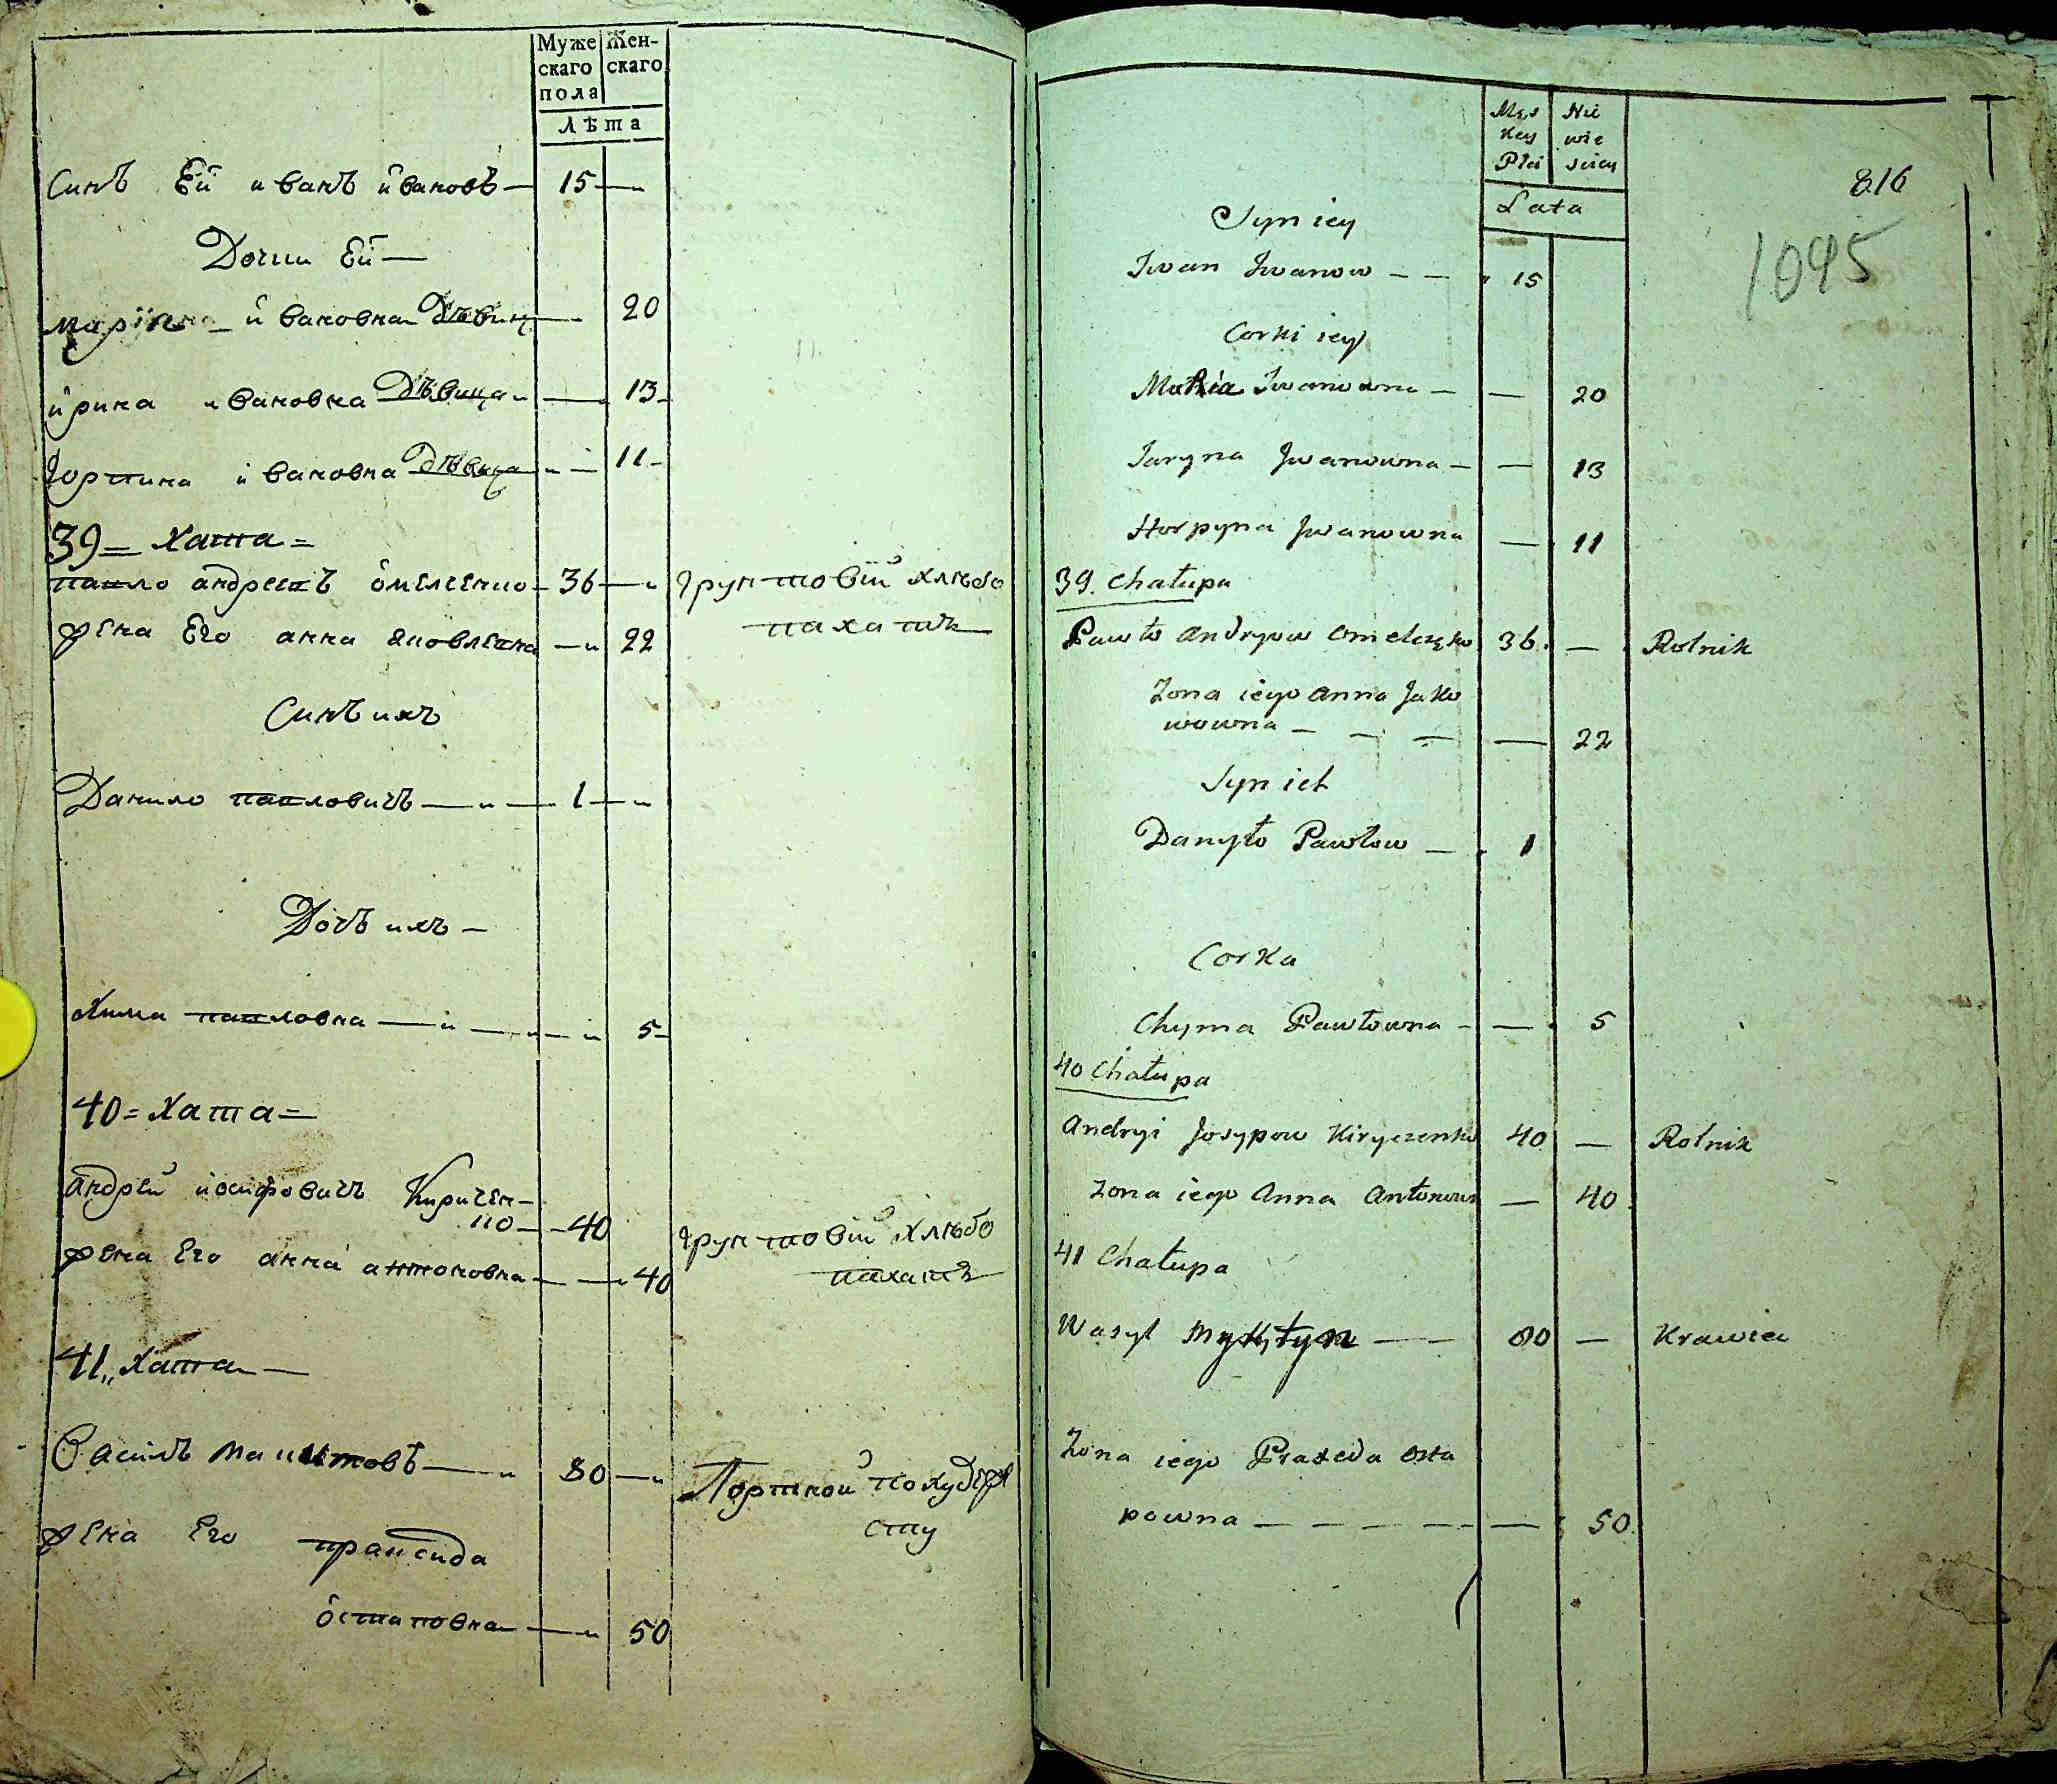 Муже Жен-
скаго скаго
пола
Лѣта
Синъ Ей иванъ ивановъ — 15 —
Дочки Ей —
Ивановна Дѣвица — 20
ирина ивановна Дѣвица — 13
Горпина ивановна Дѣвица — 11
39 = Хата =
павло андреевъ омелченко — 36 — грунтовій хлѣбо
пахатъ
жена Его анна яковлевна — 22
Синъ ихъ
Данило павловичъ — 1 —
Дочъ ихъ —
Хима павловна — 5
40 = Хата =
андрей иосифовичъ Кириченко
ко — 40 грунтовій хлѣбо
жена Его анна антоновна — 40 пахатъ
41 „ Хата —
Василъ — 80 — Портной по худож
ству
жена Его праксида
остаповна — 50
Męs Nie
key wie
Płci sciey
Lata
816
1095
Syn iey
Iwan Iwanow — — 15
Corki iey
Maria Iwanowna — — 20
Iaryna Iwanowna — — 13
Horpyna Iwanowna — 11
39. Chałupa
Pawło Andryow Omelczęko 36. — Rolnik
Zona iego Anna Jako
wowna — — — — 22
Syn ich
Danyło Pawłow — 1
Corka
Chyma Pawłowna — — 5
40 Chałupa
Andryi Josypow Kiryczenko 40 — Rolnik
Zona iego Anna Antonown — 40
41 Chałupa
Wasyl Mykytyn — — 80 — Krawiec
Zona iego Praxeda Osta
powna — — — — — 50